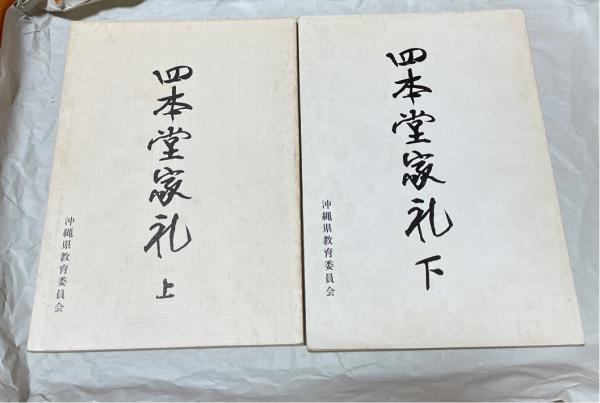 四本堂家礼 上
沖縄県教育委員会
四本堂家礼 下
沖縄県教育委員会